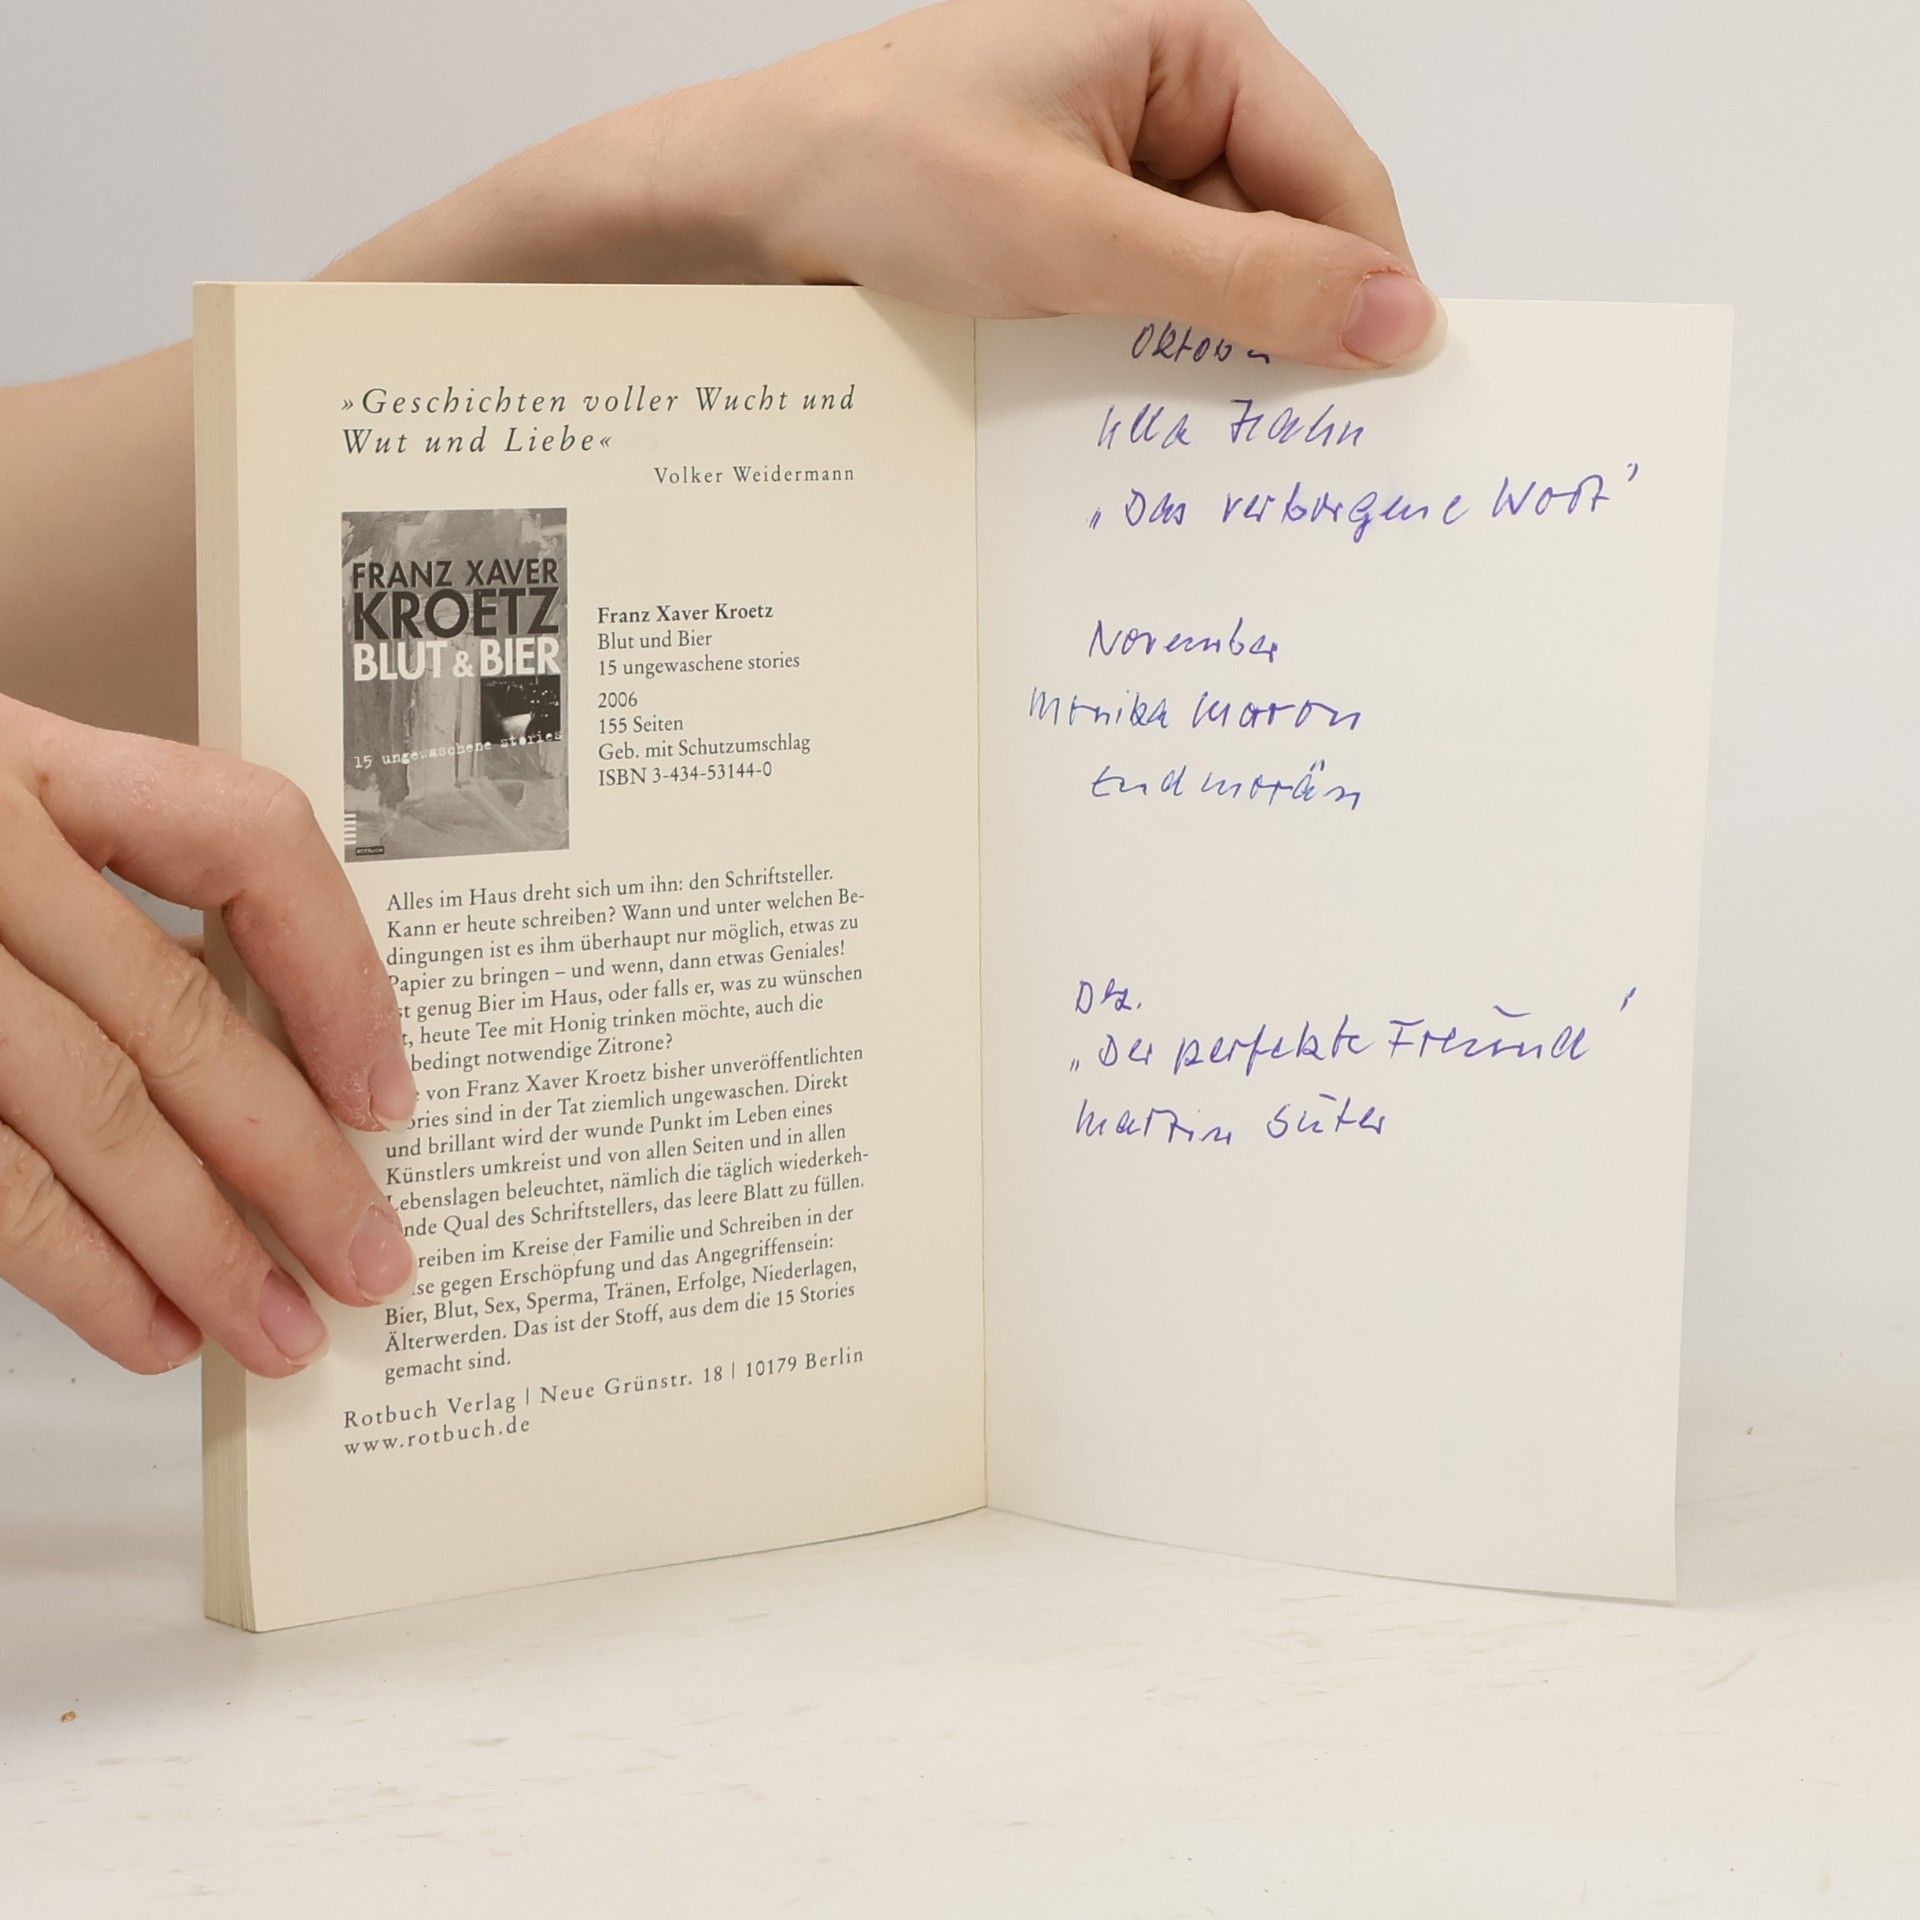 »Geschichten voller Wucht und
Wut und Liebe«
Volker Weidermann
FRANZ XAVER
KROETZ
BLUT & BIER
15 ungewaschene stories
Franz Xaver Kroetz
Blut und Bier
15 ungewaschene stories
2006
155 Seiten
Geb. mit Schutzumschlag
ISBN 3-434-53144-0
Alles im Haus dreht sich um ihn: den Schriftsteller.
Kann er heute schreiben? Wann und unter welchen Be-
dingungen ist es ihm überhaupt nur möglich, etwas zu
Papier zu bringen – und wenn, dann etwas Geniales!
genug Bier im Haus, oder falls er, was zu wünschen
heute Tee mit Honig trinken möchte, auch die
bedingt notwendige Zitrone?
von Franz Xaver Kroetz bisher unveröffentlichten
ories sind in der Tat ziemlich ungewaschen. Direkt
und brillant wird der wunde Punkt im Leben eines
Künstlers umkreist und von allen Seiten und in allen
Lebenslagen beleuchtet, nämlich die täglich wiederkeh-
nde Qual des Schriftstellers, das leere Blatt zu füllen.
reiben im Kreise der Familie und Schreiben in der
se gegen Erschöpfung und das Angegriffensein:
Bier, Blut, Sex, Sperma, Tränen, Erfolge, Niederlagen,
Älterwerden. Das ist der Stoff, aus dem die 15 Stories
gemacht sind.
Rotbuch Verlag | Neue Grünstr. 18 | 10179 Berlin
www.rotbuch.de
Oktober
Ulla Hahn
„Das verborgene Wort"
November
Monika Maron
Endmorän
Dez.
„Der perfekte Freund"
Martin Suter